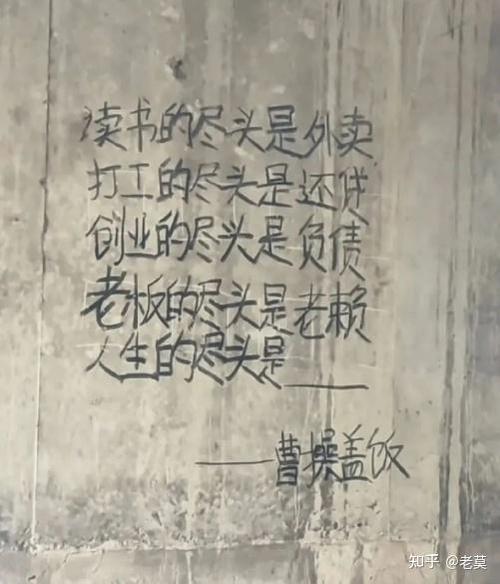 读书的尽头是外卖
打工的尽头是还贷
创业的尽头是负债
老板的尽头是老赖
人生的尽头是____
——曹操盖饭
知乎 @老莫